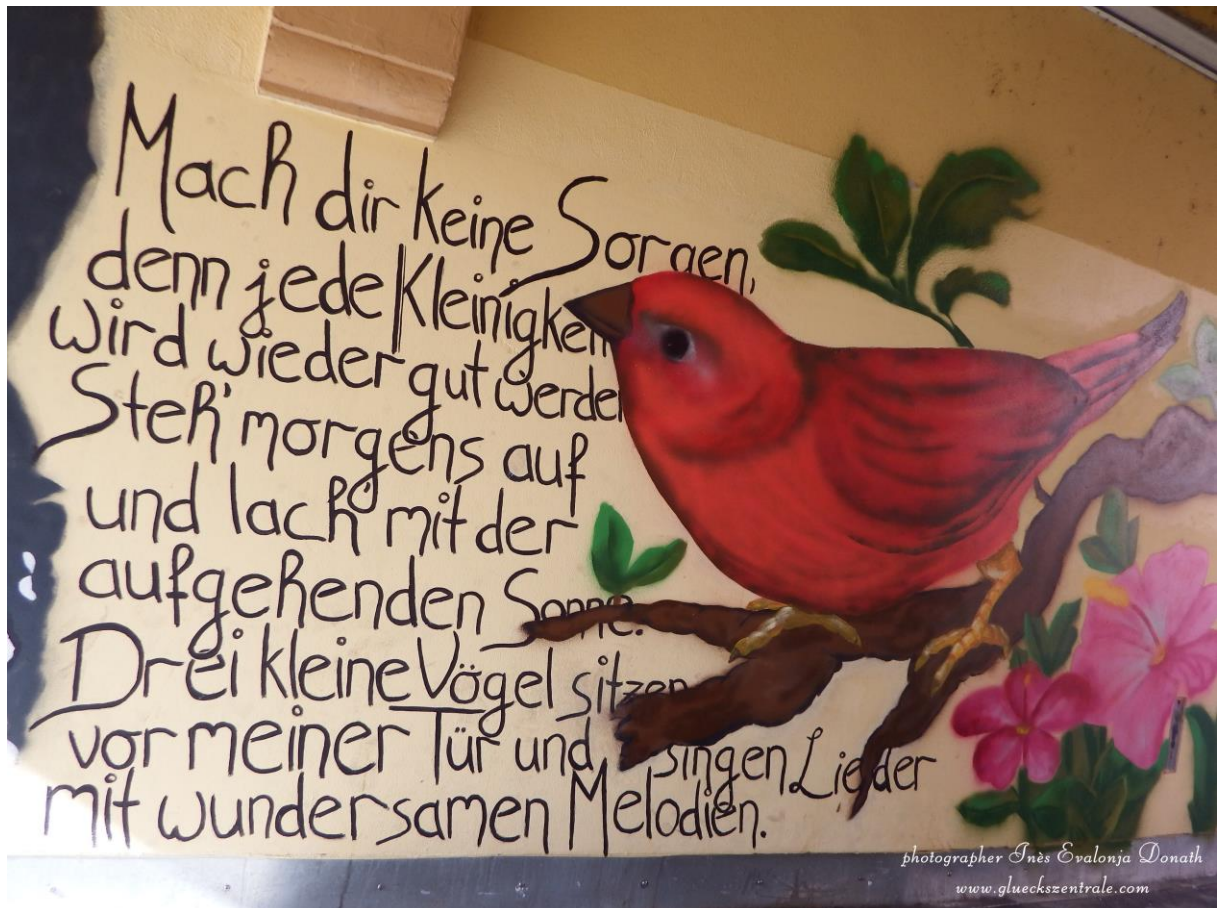 Mach dir keine Sorgen,
denn jede Kleinigkeit
wird wieder gut werden
Steh' morgens auf
und lach' mit der
aufgehenden Sonne.
Drei kleine Vögel sitzen
vor meiner Tür und singen Lieder
mit wundersamen Melodien.
photographer Inès Evalonja Donath
www.glueckszentrale.com